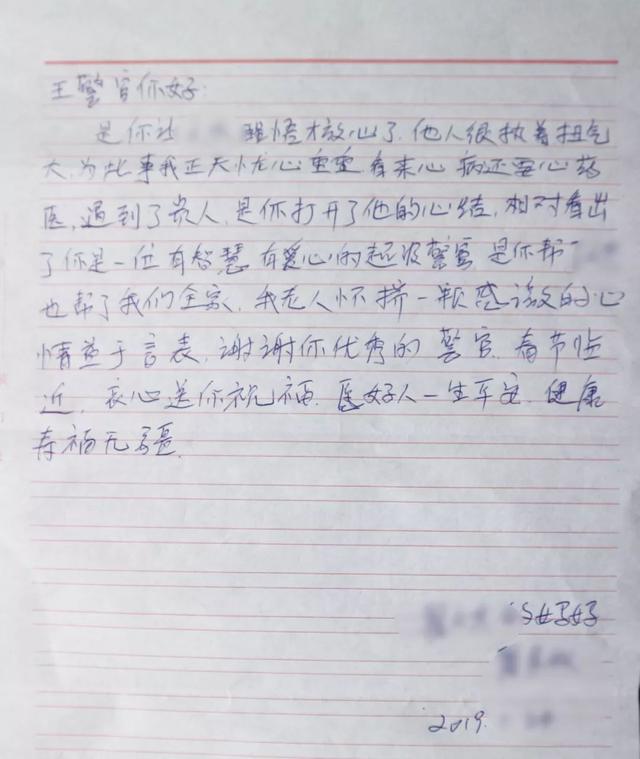 王警官你好:
是你让 醒悟才放心了.他人很执着扭气
大,为此事我正天忧心重重看来心病还要心药
医,遇到了贵人,是你打开了他的心结,相对看出
了你是一位有智慧有爱心的超级警官是你帮了
也帮了我们全家,我老人怀揣一颗感激的心
情益于言表,谢谢你优秀的警官.春节临
近,衷心送你祝福.好人一生平安.健康
寿福无疆.
2019.